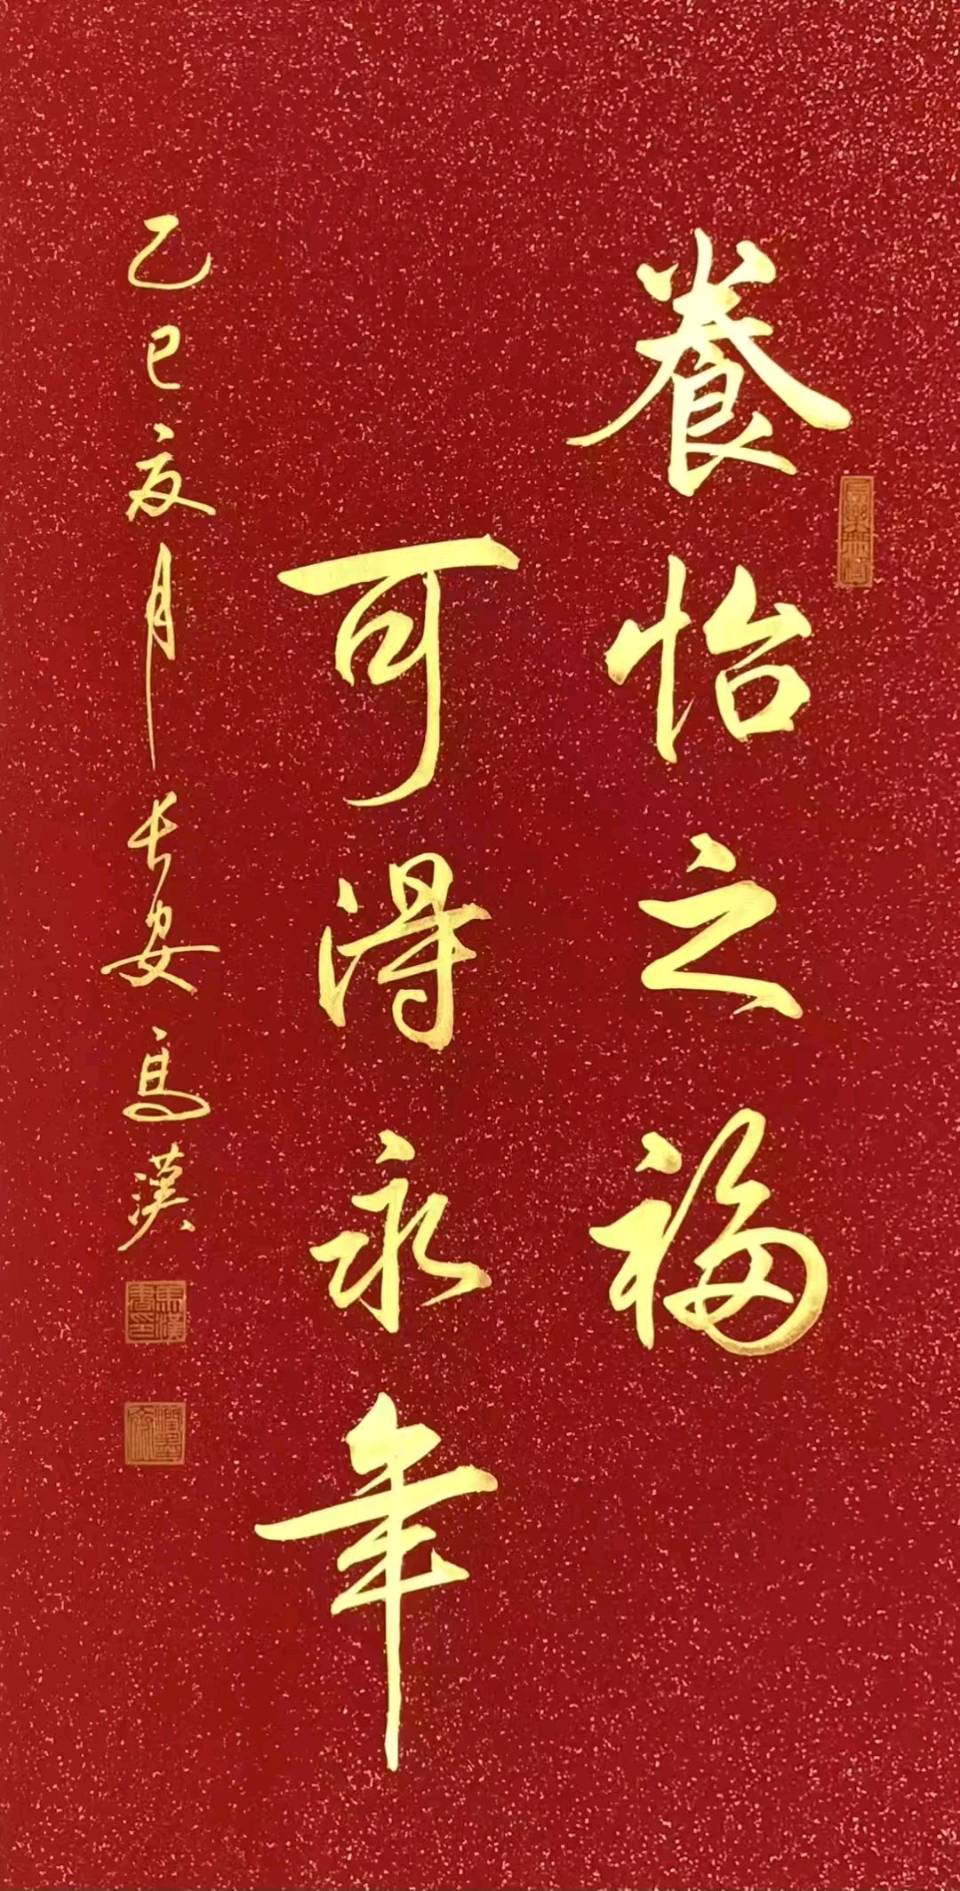 養怡之福
可得永年
乙巳夏月長安馬漢